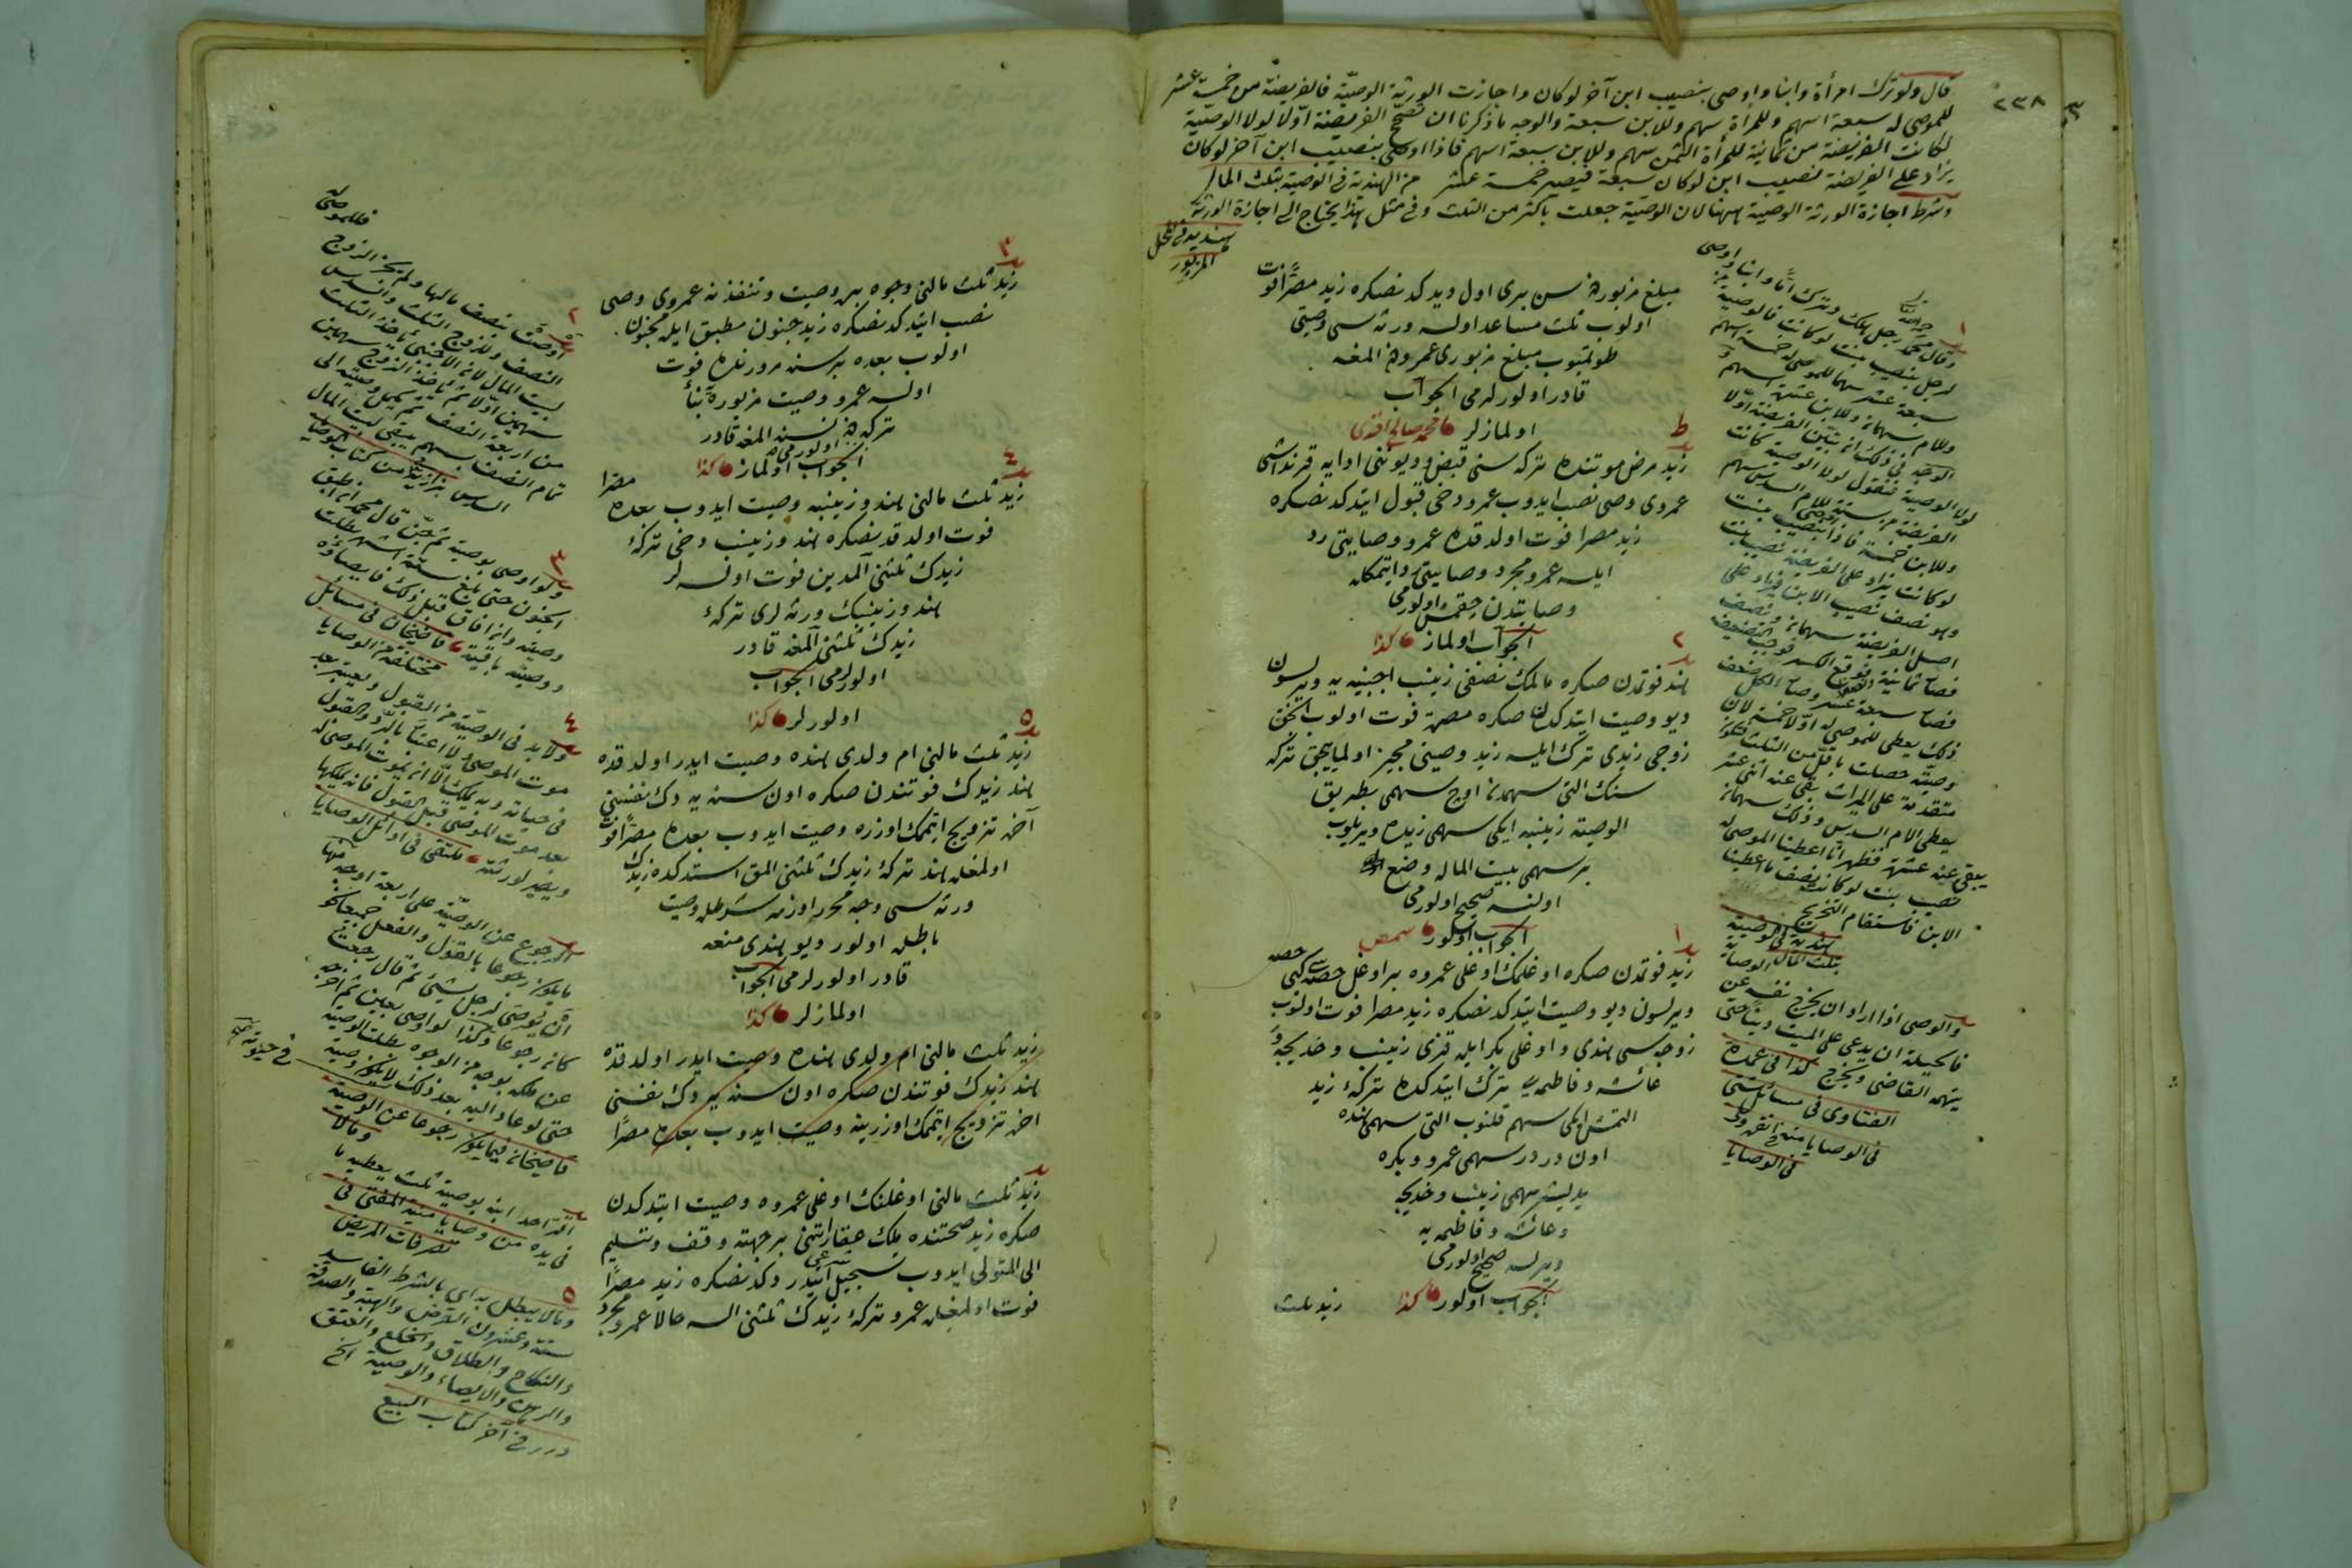 ٢٣٨
قال ولو ترك امرأة وابنا واوصى بنصيب ابن آخر لو كان واجازت الورثة الوصية فالفريضة من خمسة عشر
للموصى له سبعة اسهم وللمرأة سهم وللابن سبعة والوجه ما ذكرنا ان تصحح الفريضة اولا لولا الوصية
لكانت الفريضة من ثمانية للمرأة الثمن سهم وللابن سبعة اسهم فاذا اوصى بنصيب ابن آخر لو كان
يزاد على الفريضة نصيب ابن لو كان سبعة فيصير خمسة عشر من الهندية في الوصية بثلث المال
وشرط اجازة الورثة الوصية ههنا لان الوصية جعلت باكثر من الثلث وفي مثل هذا يحتاج الى اجازة الورثة
هنديه في المحل
المزبور
مبلغ مزبورڭ سن برى اول ديدكدنصكره زيد مصرا فوت
اولوب ثلث مساعد اولسه ورثه سى وصيتى
طوتميوب مبلغ مزبورى عمروه المغه
قادر اولورلرمى الجواب
اولمازلر محمد صالح افندى
زيد مرض موتنده تركه سنى قبض وديوننى ادايه قرنداشى
عمروى وصى نصب ايدوب عمرو دخى قبول ايتدكدنصكره
زيد مصرا فوت اولدقده عمرو وصايتى رد
ايلسه عمرو مجرد وصايتى رد ايتمكله
وصايتدن چقمش اولورمى
الجواب اولماز كذا
هند فوتمدن صكره مالمك نصفنى زينب اجنبيه يه ويرلسون
ديو وصيت ايتدكدن صكره مصره فوت اولوب انجق
زوجى زيدى ترك ايلسه زيد وصيتى مجيز اولميايجق تركه
سنك التى سهمدن اوچ سهمى بطريق
الوصية زينبه ايكى سهمى زيده ويريلوب
بر سهمى بيت الماله وضع
اولنسه صحيح اولورمى
الجواب اولور
زيد فوتمدن صكره اوغلمك اوغلى عمروه بر اوغل حصه سى كبى حصه
ويرلسون ديو وصيت ايتدكدنصكره زيد مصرا فوت اولوب
زوجه سى هندى و اوغلى بكر ايله قزى زينب و خديجه و
عائشه و فاطمه يى ترك ايتدكده تركهء زيد
التمش ايكى سهم قلنوب التى سهمى هنده
اون دردر سهمى عمرو و بكره
يديشر سهمى زينب و خديجه
و عائشه و فاطمه يه
ويرلسه صحيح اولورمى
الجواب اولور كذا
زيد ثلث
وقال محمد رجل هلك وترك اما وابنا واوصى
لرجل بنصيب بنت لو كانت فالوصية من
سبعة عشر سهما للموصى له خمسة اسهم
وللام سهمان وللابن عشرة اسهم و
الوجه في ذلك ان تبين الفريضة اولا
لولا الوصية فنقول لولا الوصية كانت
الفريضة من ستة للام السدس سهم
وللابن خمسة فاذا اوصى بنصيب بنت
لو كانت يزاد على الفريضة نصيب بنت
وهو نصف نصيب الابن فيزاد على
اصل الفريضة سهمان ونصف
فصار ثمانية ونصف فوقع الكسر فوجب التضعيف
فصار سبعة عشر وصار الكل ضعف
ذلك يعطى للموصى له اولا خمسة لان
وصيته حصلت باقل من الثلث فتكون
متقدمة على الميراث بقى عنه اثنى عشر
يعطى الام السدس وذلك سهمان
يبقى عنه عشرة فظهر انا اعطينا الموصى له
نصيب بنت لو كانت نصف ما اعطينا
الابن فاستقام التخريج
هندية في الوصية
بثلث المال
والوصى اذا اراد ان يخرج نفسه عن
الوصاية
فالحيلة ان يدعى على الميت دينا حتى
يتهمه القاضى ويخرج كذا في عمدة
الفتاوى في مسائل شتى
في الوصايا
في الوصايا
زيد ثلث مالنى وجوه بره وصيت و تنفيذنه عمروى وصى
نصب ايتدكدنصكره زيد جنون مطبق ايله مجنون
اولوب بعده بر سنه مرورنده فوت
اولسه عمرو وصيت مزبوره يه بناء
تركه دن نسنه المغه قادر
اولورمى
الجواب اولماز كذا
زيد ثلث مالنى هند و زينبه وصيت ايدوب بعده مصرا
فوت اولدقدنصكره هند و زينب دخى تركهء
زيدك ثلثنى آلمدين فوت اولسه لر
هند و زينبك ورثه لرى تركهء
زيدك ثلثنى آلمغه قادر
اولورلرمى الجواب
اولورلر كذا
زيد ثلث مالنى ام ولدى هنده وصيت ايدر اولدقده
هند زيدك فوتندن صكره اون سنه يه دك نفسنى
آخره تزويج ايتمامك اوزره وصيت ايدوب بعده مصرا فوت
اولمغله هند تركهء زيدك ثلثنى المق استدكده زيدك
ورثه سى وجه محرر اوزره شرطله وصيت
باطله اولور ديو هندى منعه
قادر اولورلرمى الجواب
اولمازلر كذا
زيد ثلث مالنى ام ولدى هنده وصيت ايدر اولدقده
هند زيدك فوتندن صكره اون سنه يه دك نفسنى
اخره تزويج ايتمامك اوزرينه وصيت ايدوب بعده مصرا
زيد ثلث مالنى اوغلنك اوغلى عمروه وصيت ايتدكدن
صكره زيد صحتنده ملك عقاراتنى بر جهته وقف وتسليم
الى المتولى ايدوب تسجيل شرعى ايتدردكدنصكره زيد مصرا
فوت اولمغله عمرو تركهء زيدك ثلثنى السه حالا عمرو مجرد
اوصت بنصف مالها ولم يجز الزوج فللموصى له
النصف وللزوج الثلث والسدس
لبيت المال لان الاجنبى يأخذ الثلث
سهمين اولا ثم يأخذ الزوج سهمين
من اربعة النصف ثم يكمل وصيته الى
تمام النصف بسهم يبقى لبيت المال
السدس بزازية من كتاب الوصايا
ولو اوصى بوصية ثم جن قال محمد ان اطبق
الجنون حتى بلغ ستة اشهر بطلت
وصيته وان افاق قبل ذلك فايصاؤه
ووصيته باقية قاضيخان في مسائل
مختلفة من الوصايا
ولابد في الوصية من القبول ويعتبر بعد
موت الموصى ولا اعتبار بالرد والقبول
في حياته وبه يملك الا ان يموت الموصى له
بعد موت الموصى قبل القبول فانه يملكها
ويصير لورثته ملتقى في اوائل الوصايا
الرجوع عن الوصية على اربعة اوجه منها
ما يكون رجوعا بالقول والفعل جميعا نحو
ان يوصى لرجل بشئ ثم قال رجعت
كان رجوعا وكذا لو اوصى بعين ثم اخرجه
عن ملكه بوجه من الوجوه بطلت الوصية
حتى لو عاد اليه بعد ذلك لا يكون وصية
قاضيخان فيما يكون رجوعا عن الوصية
اقر احد ابنيه بوصية ثلث يعطيه ما
في يده من وصايا منية المفتى في
تصرفات المريض
وما لا يبطل به اى بالشرط الفاسد
ستة وعشرون القرض والهبة والصدقة
والنكاح والطلاق والخلع والعتق
والرهن والايصاء والوصية الخ
درر في آخر كتاب البيع